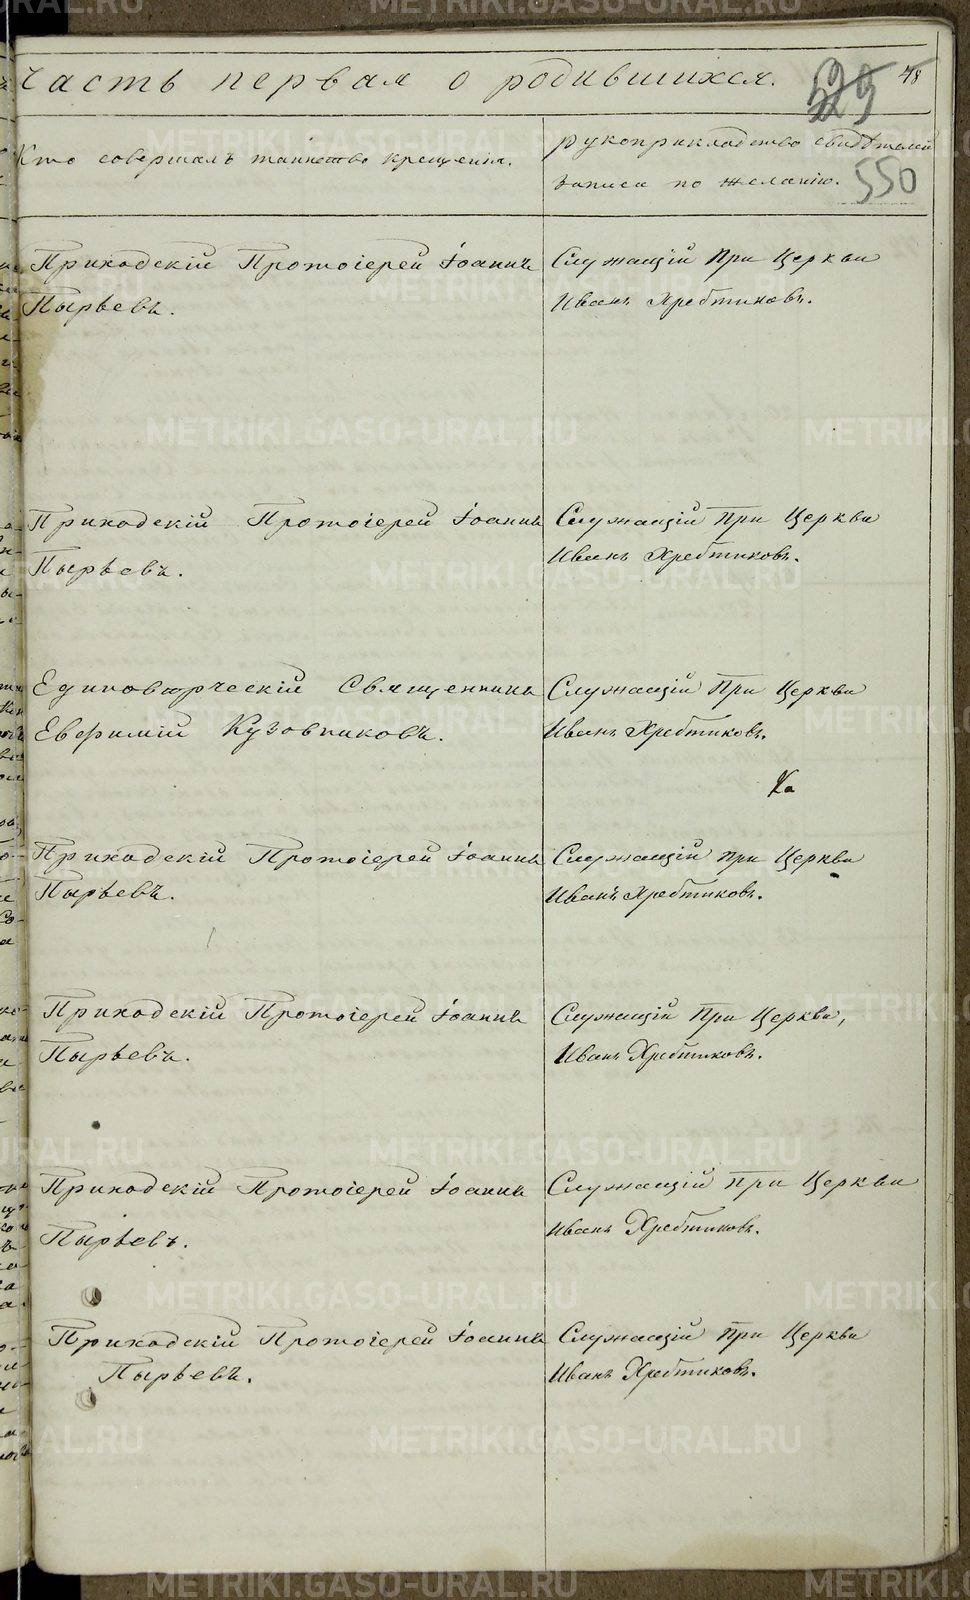 Часть первая о родившихся.
48
529
Кто совершалъ таинство крещенія.
Рукоприкладство свидѣтелей
записи по желанію.
550
Приходскій Протоіерей Іоаннъ
Пырьевъ.
Служащій при Церкви
Иванъ Хребтиковъ.
Приходскій Протоіерей Іоаннъ
Пырьевъ.
Служащій при Церкви
Иванъ Хребтиковъ.
Единовѣрческій Священникъ
Евфимій Кузовниковъ.
Служащій При Церкви
Иванъ Хребтиковъ.
Приходскій Протоіерей Іоаннъ
Пырьевъ.
Служащій при Церкви
Иванъ Хребтиковъ.
Приходскій Протоіерей Іоаннъ
Пырьевъ.
Служащій При Церкви,
Иванъ Хребтиковъ.
Приходскій Протоіерей Іоаннъ
Пырьевъ.
Служащій при Церкви
Иванъ Хребтиковъ.
Приходскій Протоіерей Іоаннъ
Пырьевъ.
Служащій При Церкви
Иванъ Хребтиковъ.
METRIKI.GASO-URAL.RU